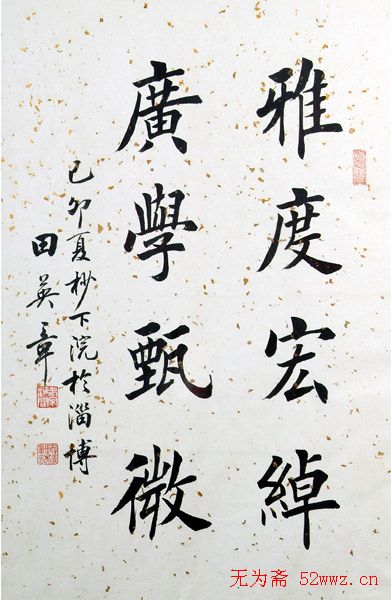 雅度宏綽
廣學甄微
己卯夏杪下浣於淄博
田英章
无为斋 52wwz.cn